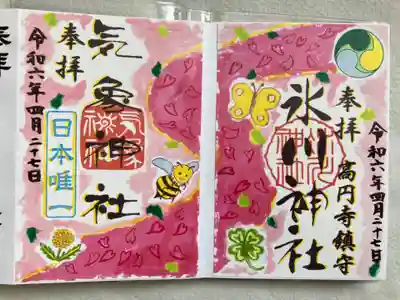 令和六年四月二十七日
奉拝
高円寺鎮守
氷川神社
気象神社
奉拝
日本唯一
令和六年四月二十七日
奉拝